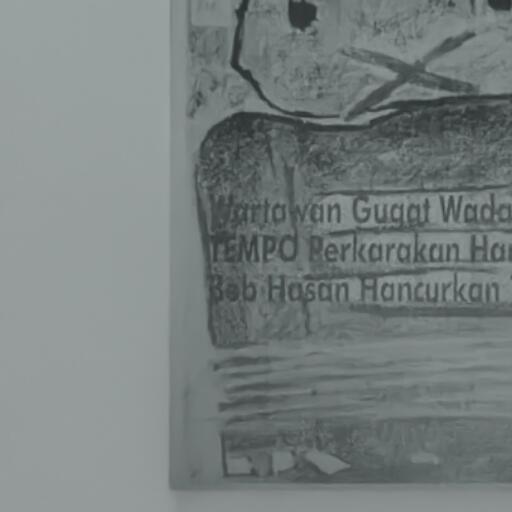 Wartawan Gugat Wada
TEMPO Perkarakan Har
Bob Hasan Hancurkan